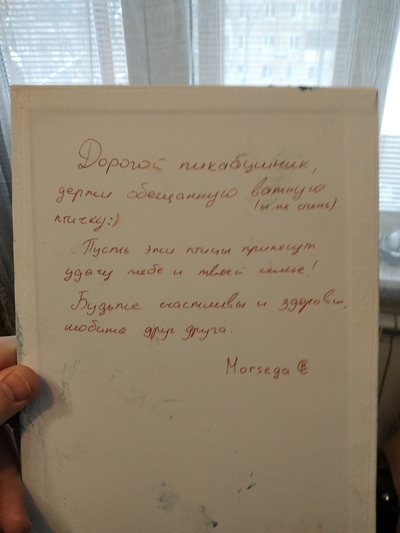 Дорогой пикабушник,
держи обещанную ватную
(и не очень)
птичку:)
Пусть эти птицы принесут
удачу тебе и твоей семье!
Будьте счастливы и здоровы,
любите друг друга.
Morsega